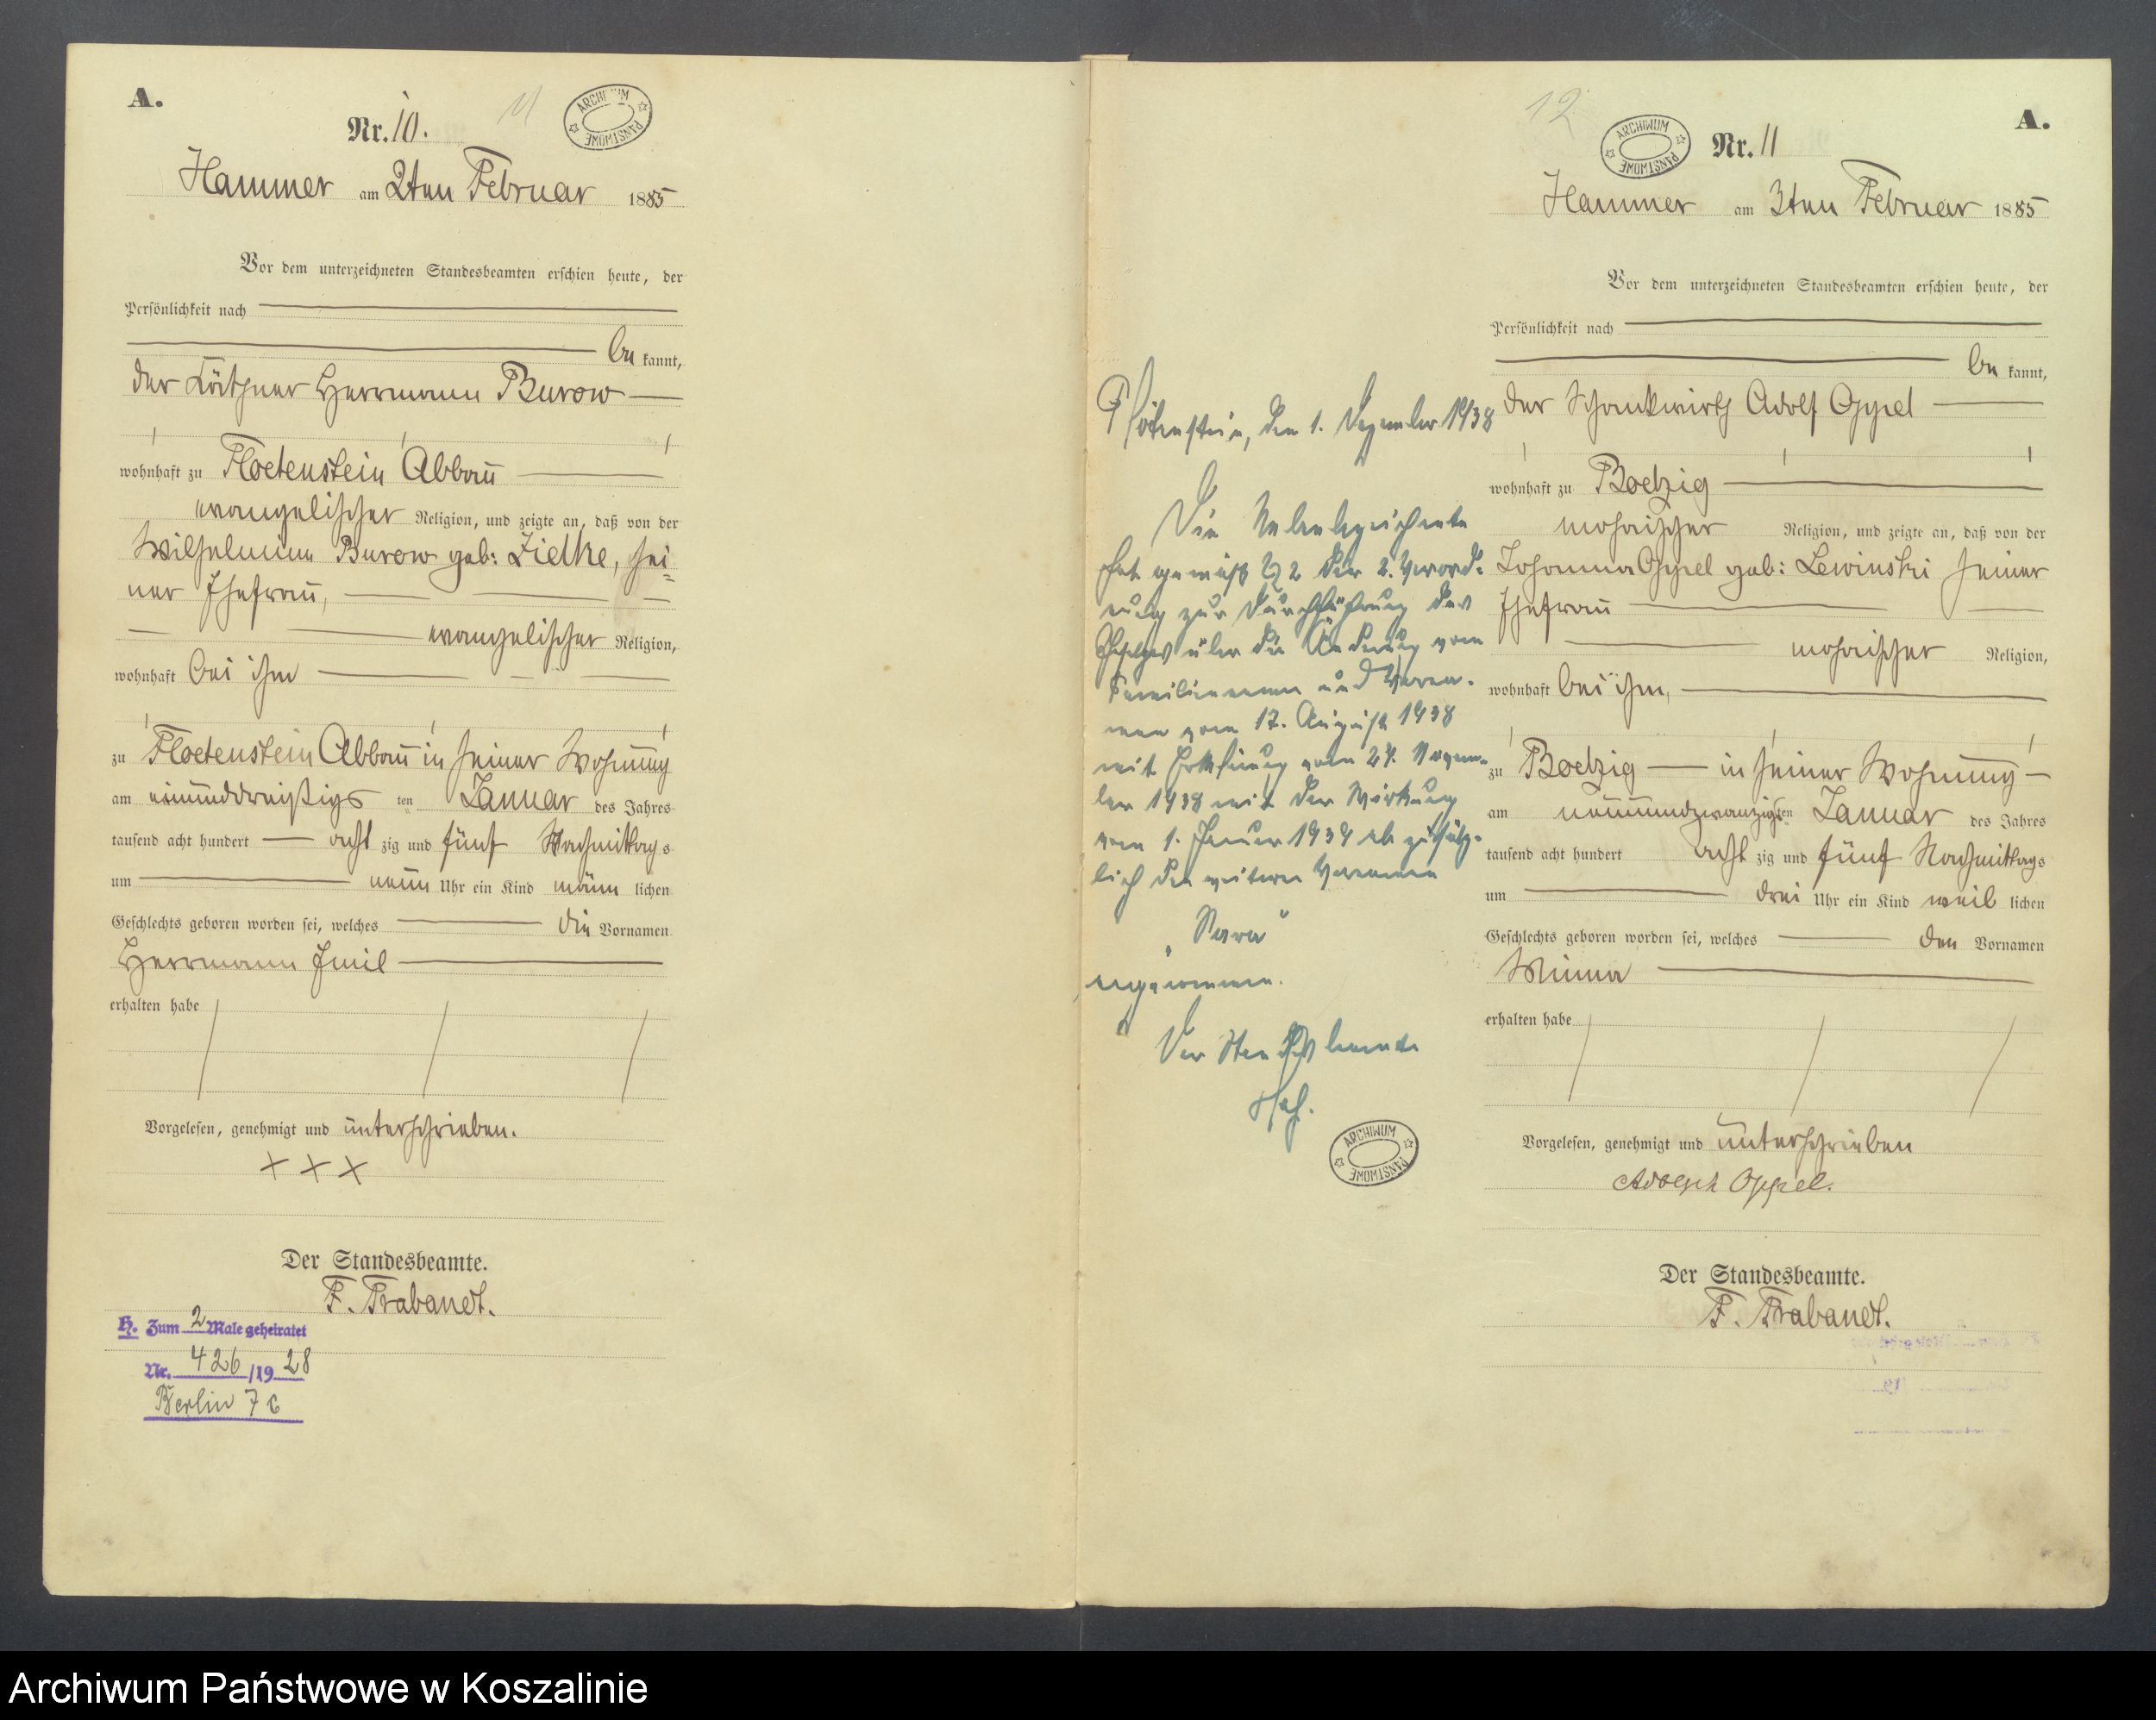 A.
Nr. 10.
11
ARCHIWUM PAŃSTWOWE
Hammer am 2ten Februar 1885
Vor dem unterzeichneten Standesbeamten erschien heute, der
Persönlichkeit nach
be kannt,
der Käthner Herrmann Burow
wohnhaft zu Floetenstein Abbau
evangelischer Religion, und zeigte an, daß von der
Wilhelmine Burow geb: Zielke, sei=
ner Ehefrau,
evangelischer Religion,
wohnhaft bei ihm
zu Floetenstein Abbau in seiner Wohnung
am einunddreißigs ten Januar des Jahres
tausend acht hundert acht zig und fünf Nachmittags
um neun Uhr ein Kind männ lichen
Geschlechts geboren worden sei, welches die Vornamen
Herrmann Emil
erhalten habe
Vorgelesen, genehmigt und unterschrieben.
+ + +
Der Standesbeamte.
F. Trabandt.
H. Zum 2 Male geheiratet
Nr. 426 /19 28
Berlin 7c
12
ARCHIWUM PAŃSTWOWE
Nr. 11
A.
Hammer am 3ten Februar 1885
Vor dem unterzeichneten Standesbeamten erschien heute, der
Persönlichkeit nach
be kannt,
der Schankwirth Adolf Oppel
wohnhaft zu Boelzig
mosaischer Religion, und zeigte an, daß von der
Johanna Oppel geb: Lewinski seiner
Ehefrau
mosaischer Religion,
wohnhaft bei ihm,
zu Boelzig in seiner Wohnung
am neunundzwanzigsten Januar des Jahres
tausend acht hundert acht zig und fünf Nachmittags
um drei Uhr ein Kind weib lichen
Geschlechts geboren worden sei, welches den Vornamen
Minna
erhalten habe
Vorgelesen, genehmigt und unterschrieben
Adolph Oppel.
Der Standesbeamte.
F. Trabandt.
Flötenstein, den 1. Dezember 1938
Die Nebenbezeichnete
hat gemäß § 2 der 2. Verord-
nung zur Durchführung des
Gesetzes über die Änderung von
Familiennamen und Vorna-
men vom 17. August 1938
mit Erklärung vom 24. Novem-
ber 1938 mit der Wirkung
vom 1. Januar 1939 ab zusätz-
lich den weiteren Vornamen
„Sara“
angenommen.
Der Standesbeamte
ARCHIWUM PAŃSTWOWE
Archiwum Państwowe w Koszalinie